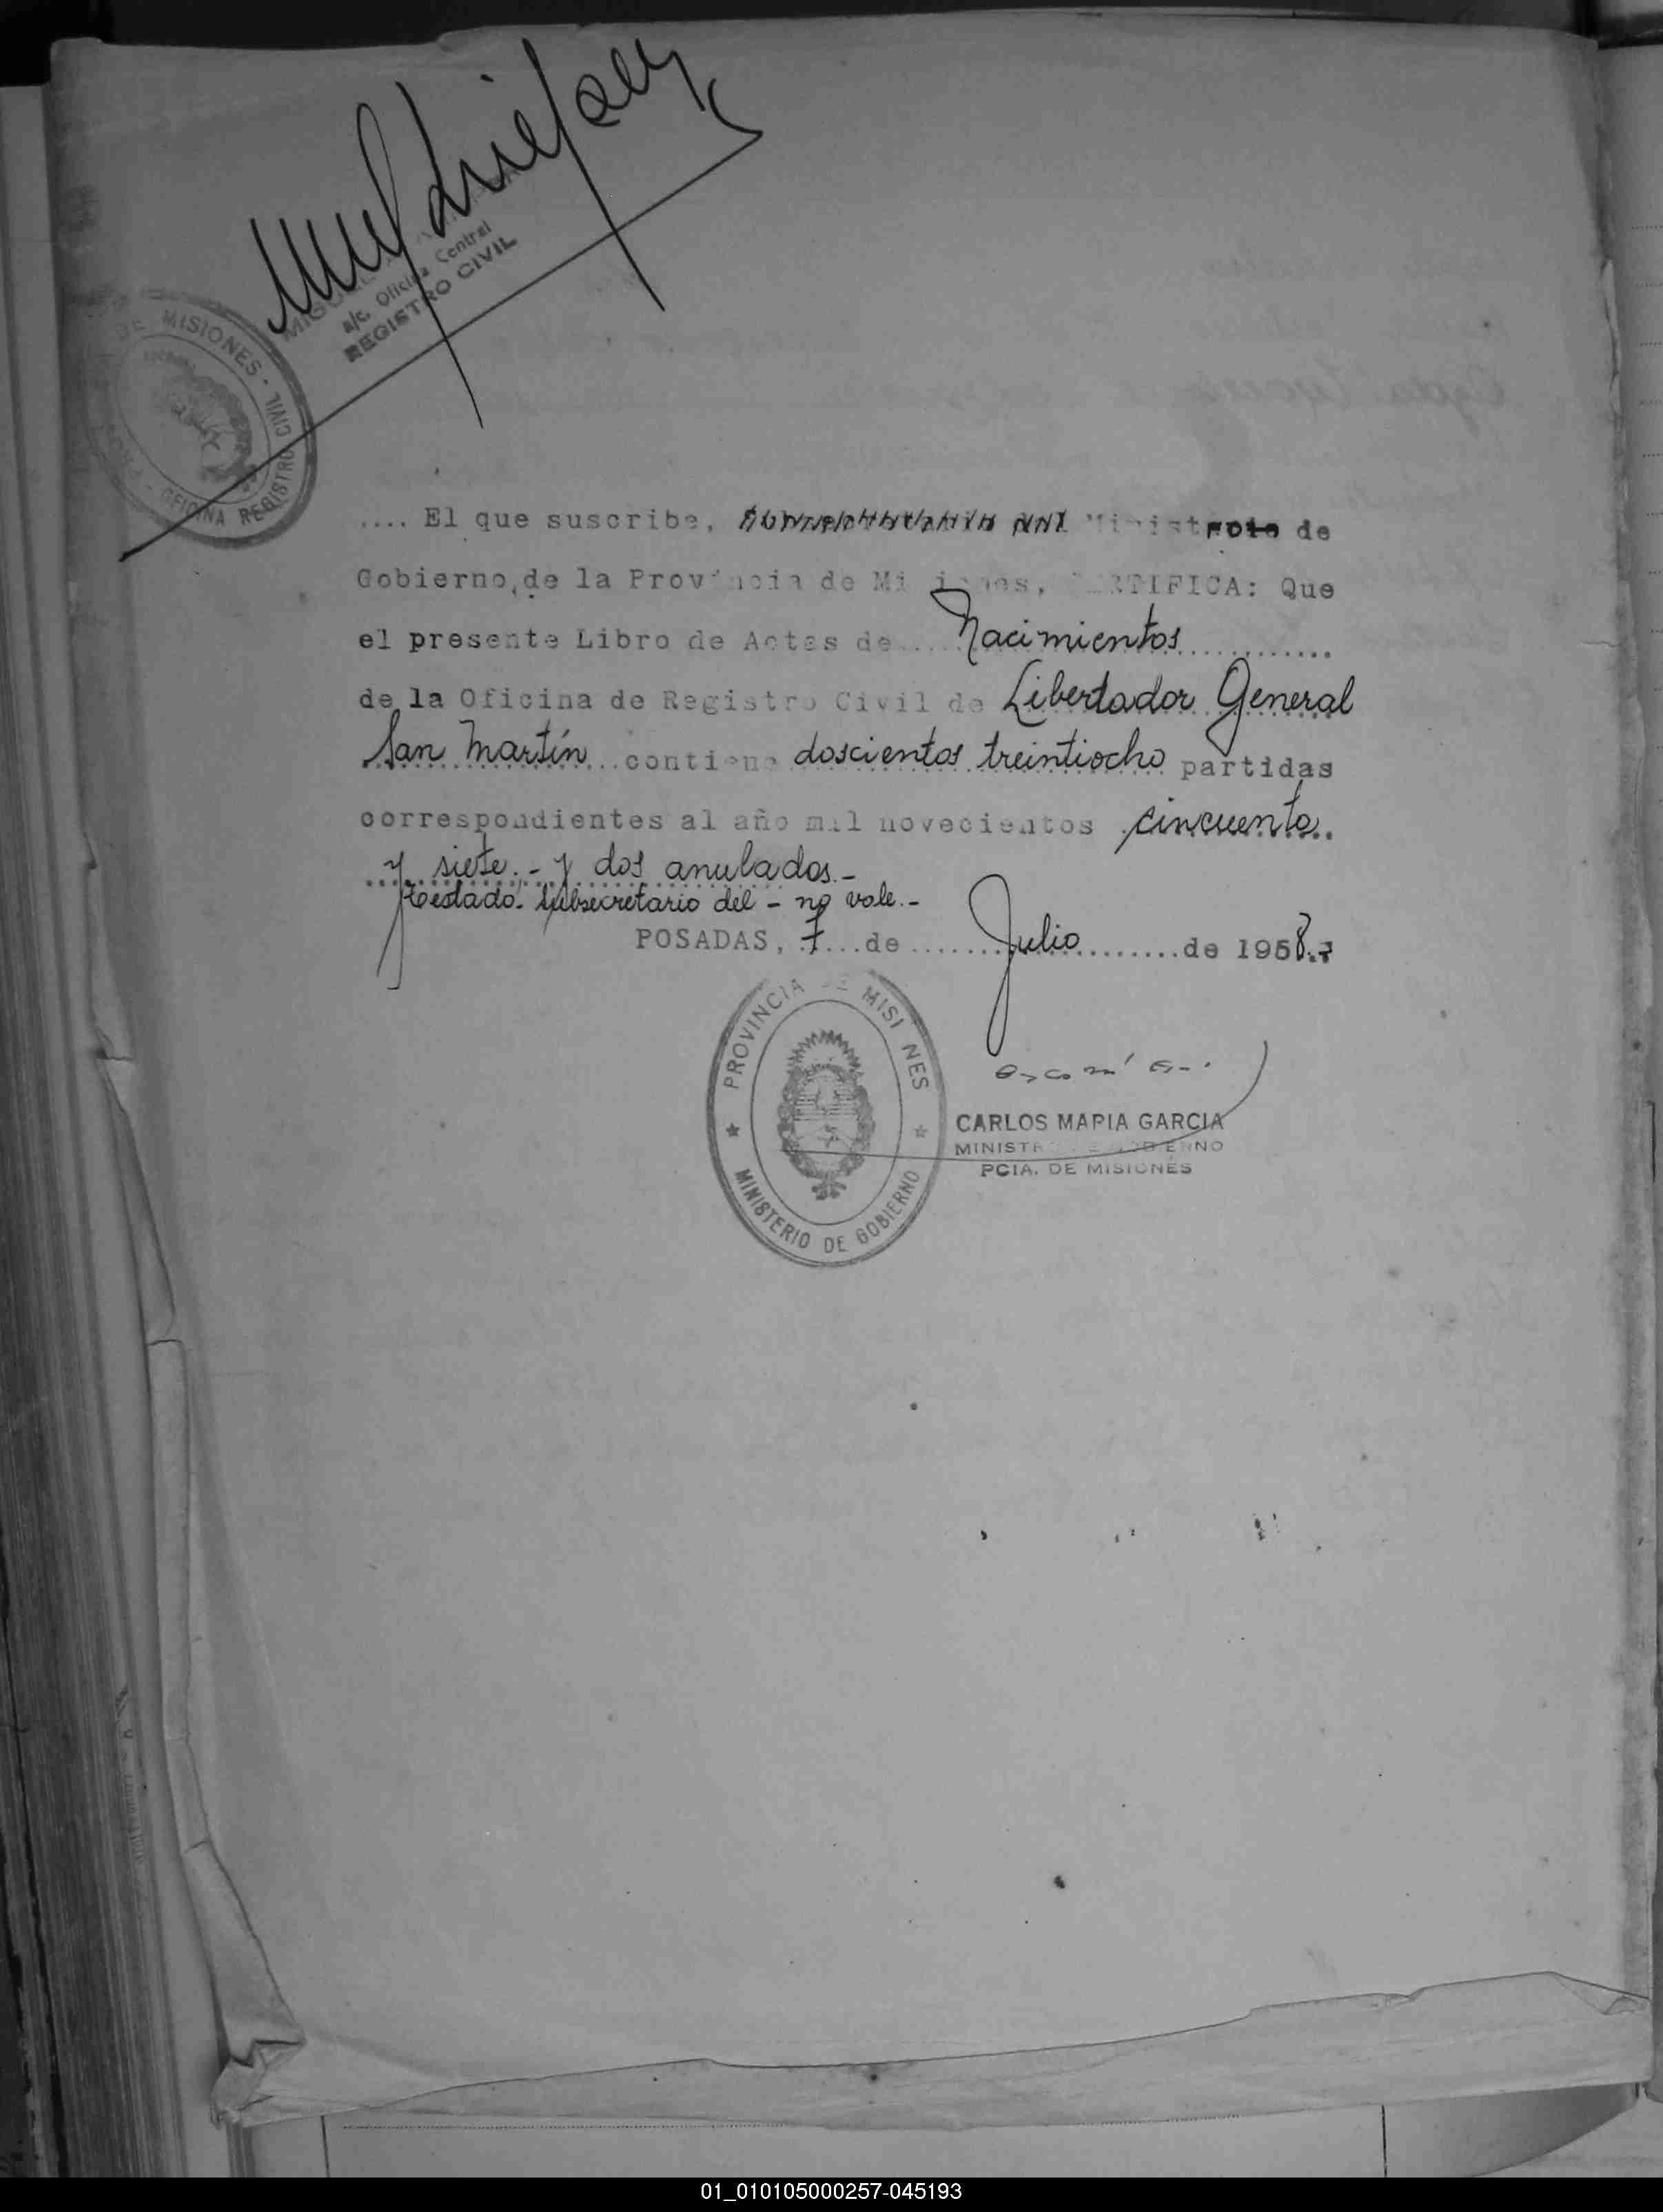 a/c. Oficina Central
REGISTRO CIVIL
DE MISIONES - OFICINA REGISTRO CIVIL
.... El que suscribe, Ministro de
Gobierno, de la Provincia de Misiones, CERTIFICA: Que
el presente Libro de Actas de.....Nacimientos............
de la Oficina de Registro Civil de Libertador General
San Martín...contiene doscientos treintiocho partidas
correspondientes al año mil novecientos cincuenta..
y siete.- y dos anulados.-
Testado: Subsecretario del - no vale.-
POSADAS, 7...de.......Julio.......de 1958.-
PROVINCIA DE MISIONES
MINISTERIO DE GOBIERNO
CARLOS MARIA GARCIA
MINISTRO DE GOBIERNO
PCIA. DE MISIONES
01_010105000257-045193